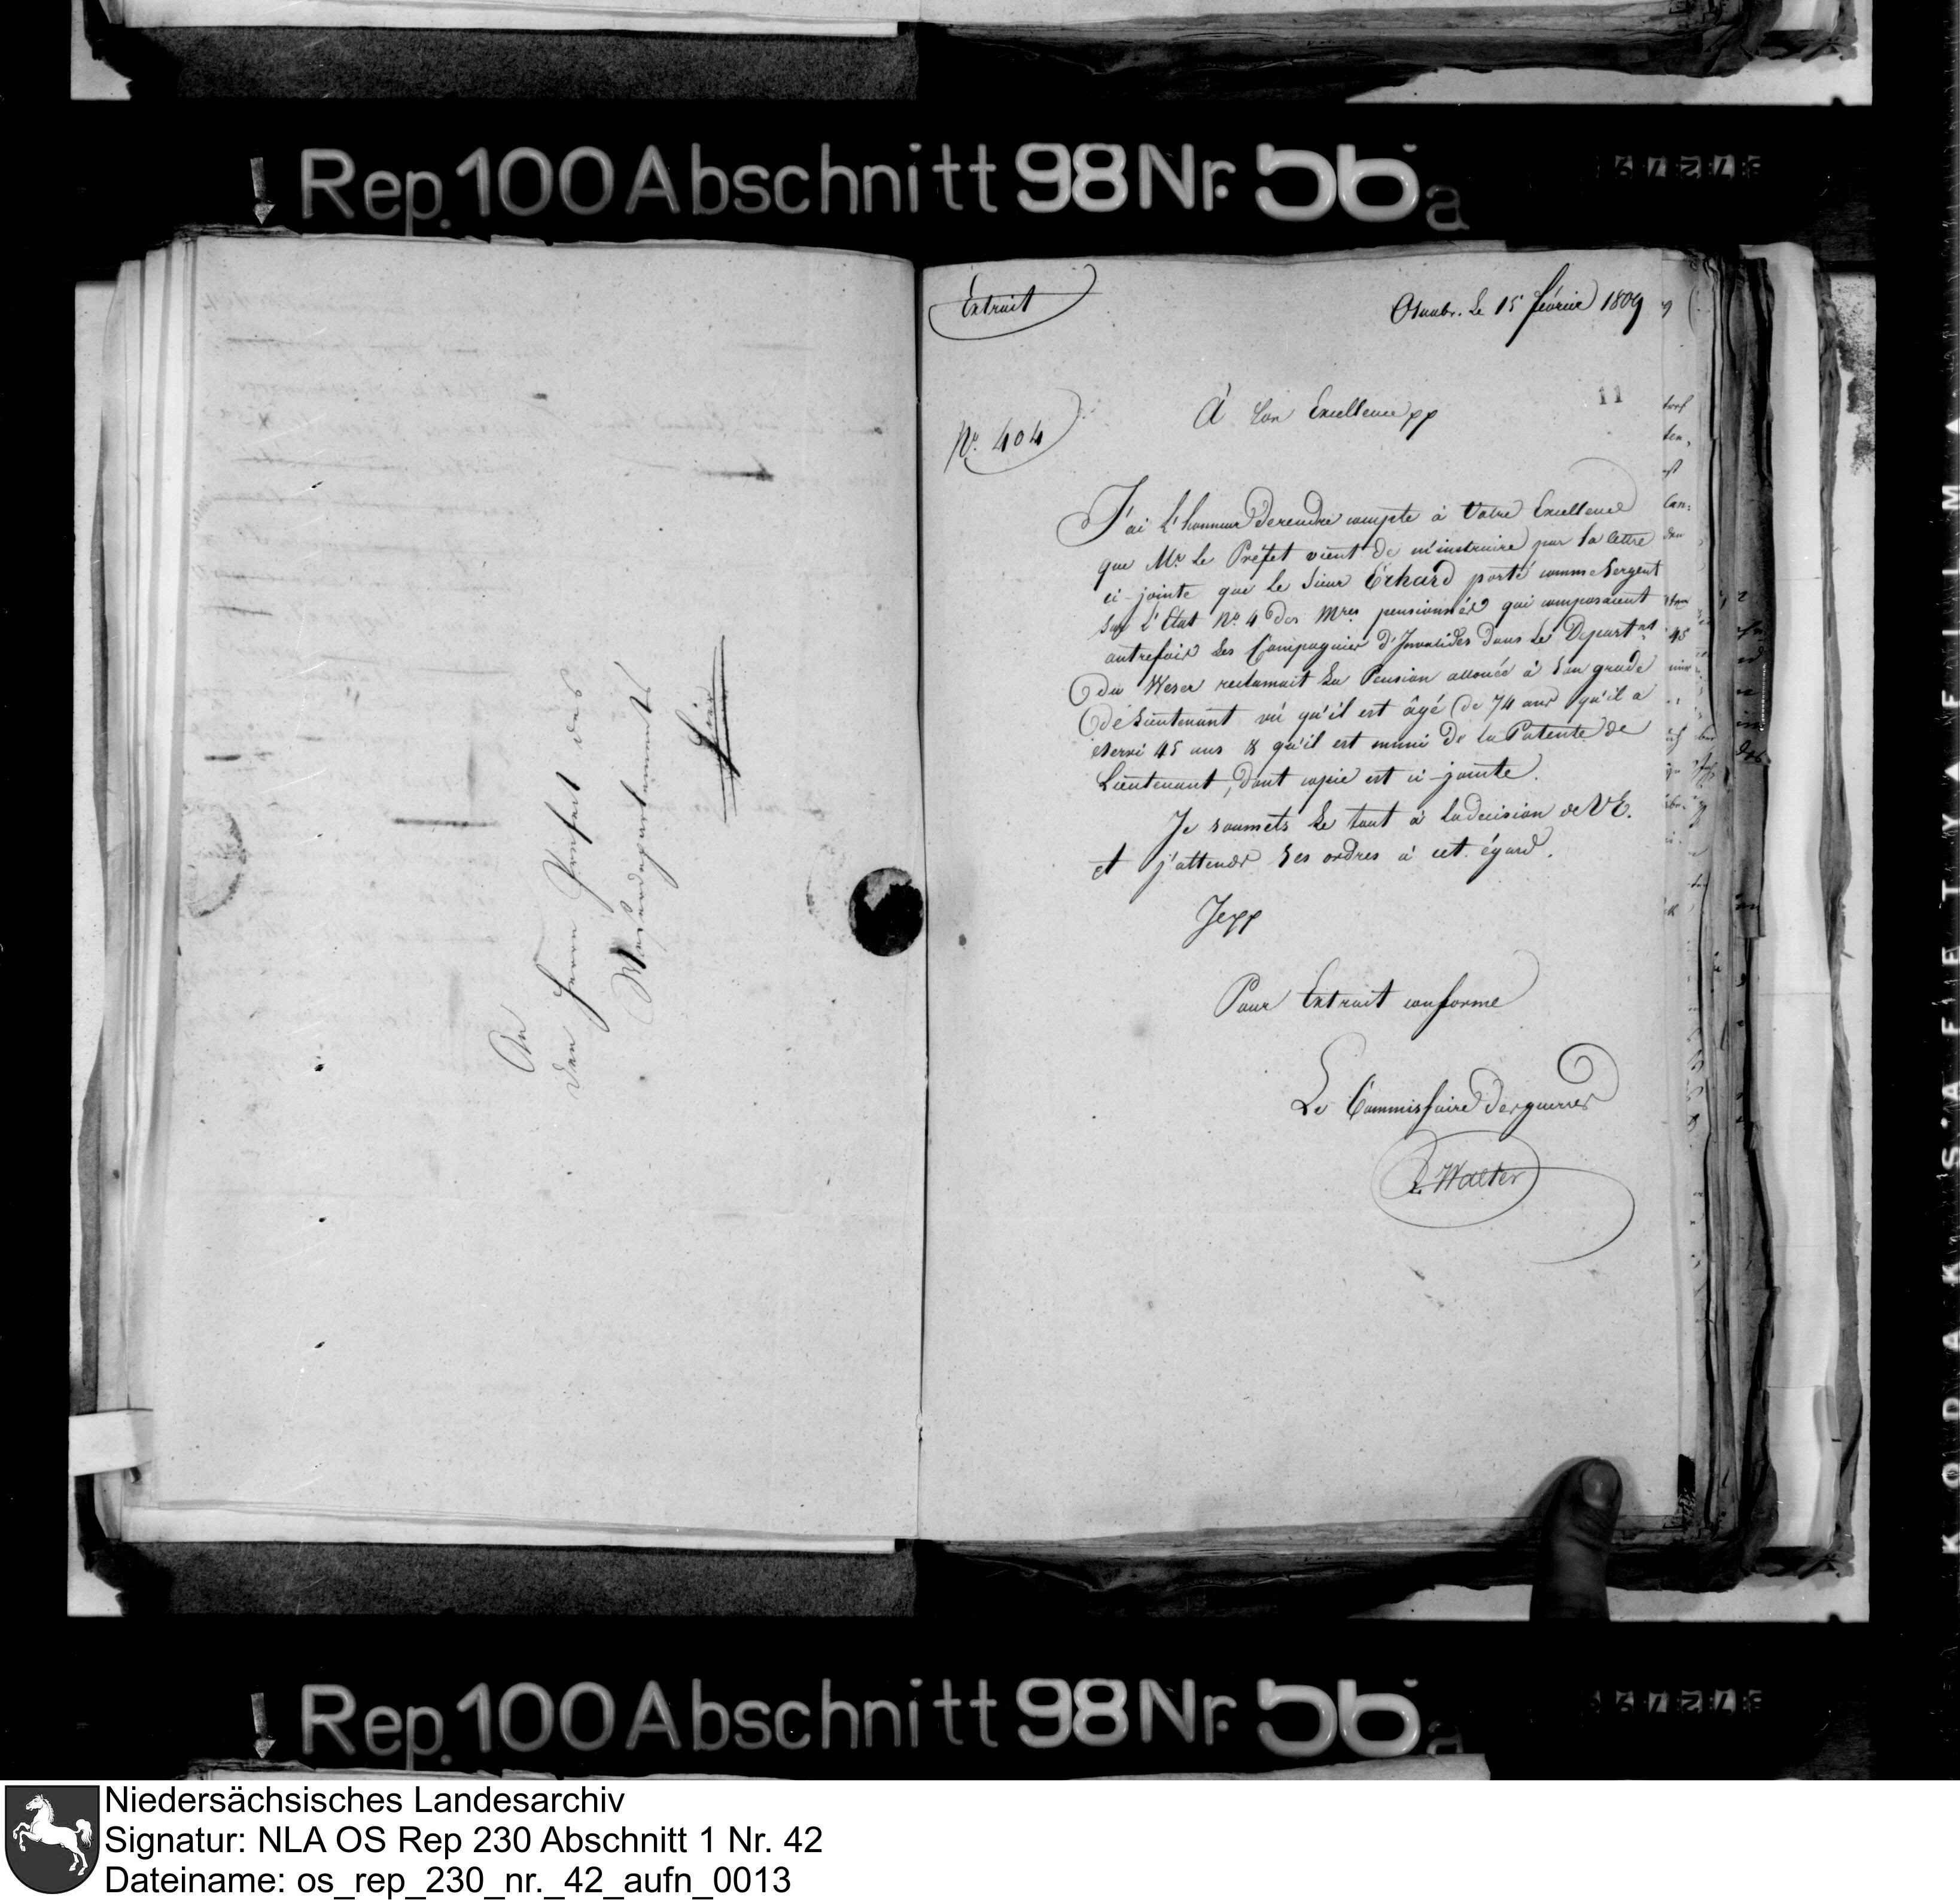 Rep. 100 Abschnitt 98 Nr. 56a
An
den Herrn Praefect des
Weserdepartements
hier
Extrait
Osnabr. Le 15 février 1809
11
À Son Excellence pp
Nº. 404
J'ai L'honneur de rendre compte à Votre Excellence
que Mr. Le Préfet vient de m'instruire par sa lettre
ci-jointe que le Sieur Erhard porté comme Sergent
sur L'Etat Nº. 4 des Mres pensionnés qui composaient
autrefois Les Compagnies d'Invalides dans Le Departnt
du Weser reclamait La Pension allouée à Son grade
de Lieutenant vû qu'il est âgé de 74 ans qu'il a
servi 45 ans & qu'il est muni de La Patente de
Lieutenant, dont copie est ci-jointe.
Je soumets Le tout à La decision de V E.
et j'attends Ses ordres à cet égard.
Je pp
Pour Extrait conforme
Le Commissaire des guerres
Walter
Rep. 100 Abschnitt 98 Nr. 56a
Niedersächsisches Landesarchiv
Signatur: NLA OS Rep 230 Abschnitt 1 Nr. 42
Dateiname: os_rep_230_nr._42_aufn_0013